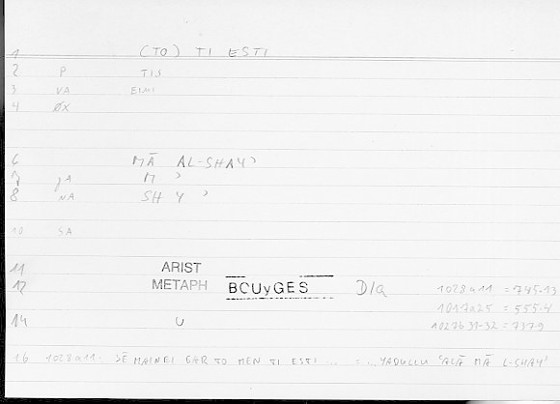 1 (TO) TI ESTI
2 P TIS
3 VA EIMI
4 ØX
6 MĀ AL-SHAYʾ
7 PA M ʾ
8 NA SH Y ʾ
10 SA
11 ARIST
12 METAPH BOUyGES D/Q 1028a11 = 745.13
1017a25 = 555.4
14 U 1027b31-32 = 737.9
16 1028a11. SĒMAINEI GAR TO MEN TI ESTI ... = ... YADULLU ʿALĀ MĀ L-SHAYʾ